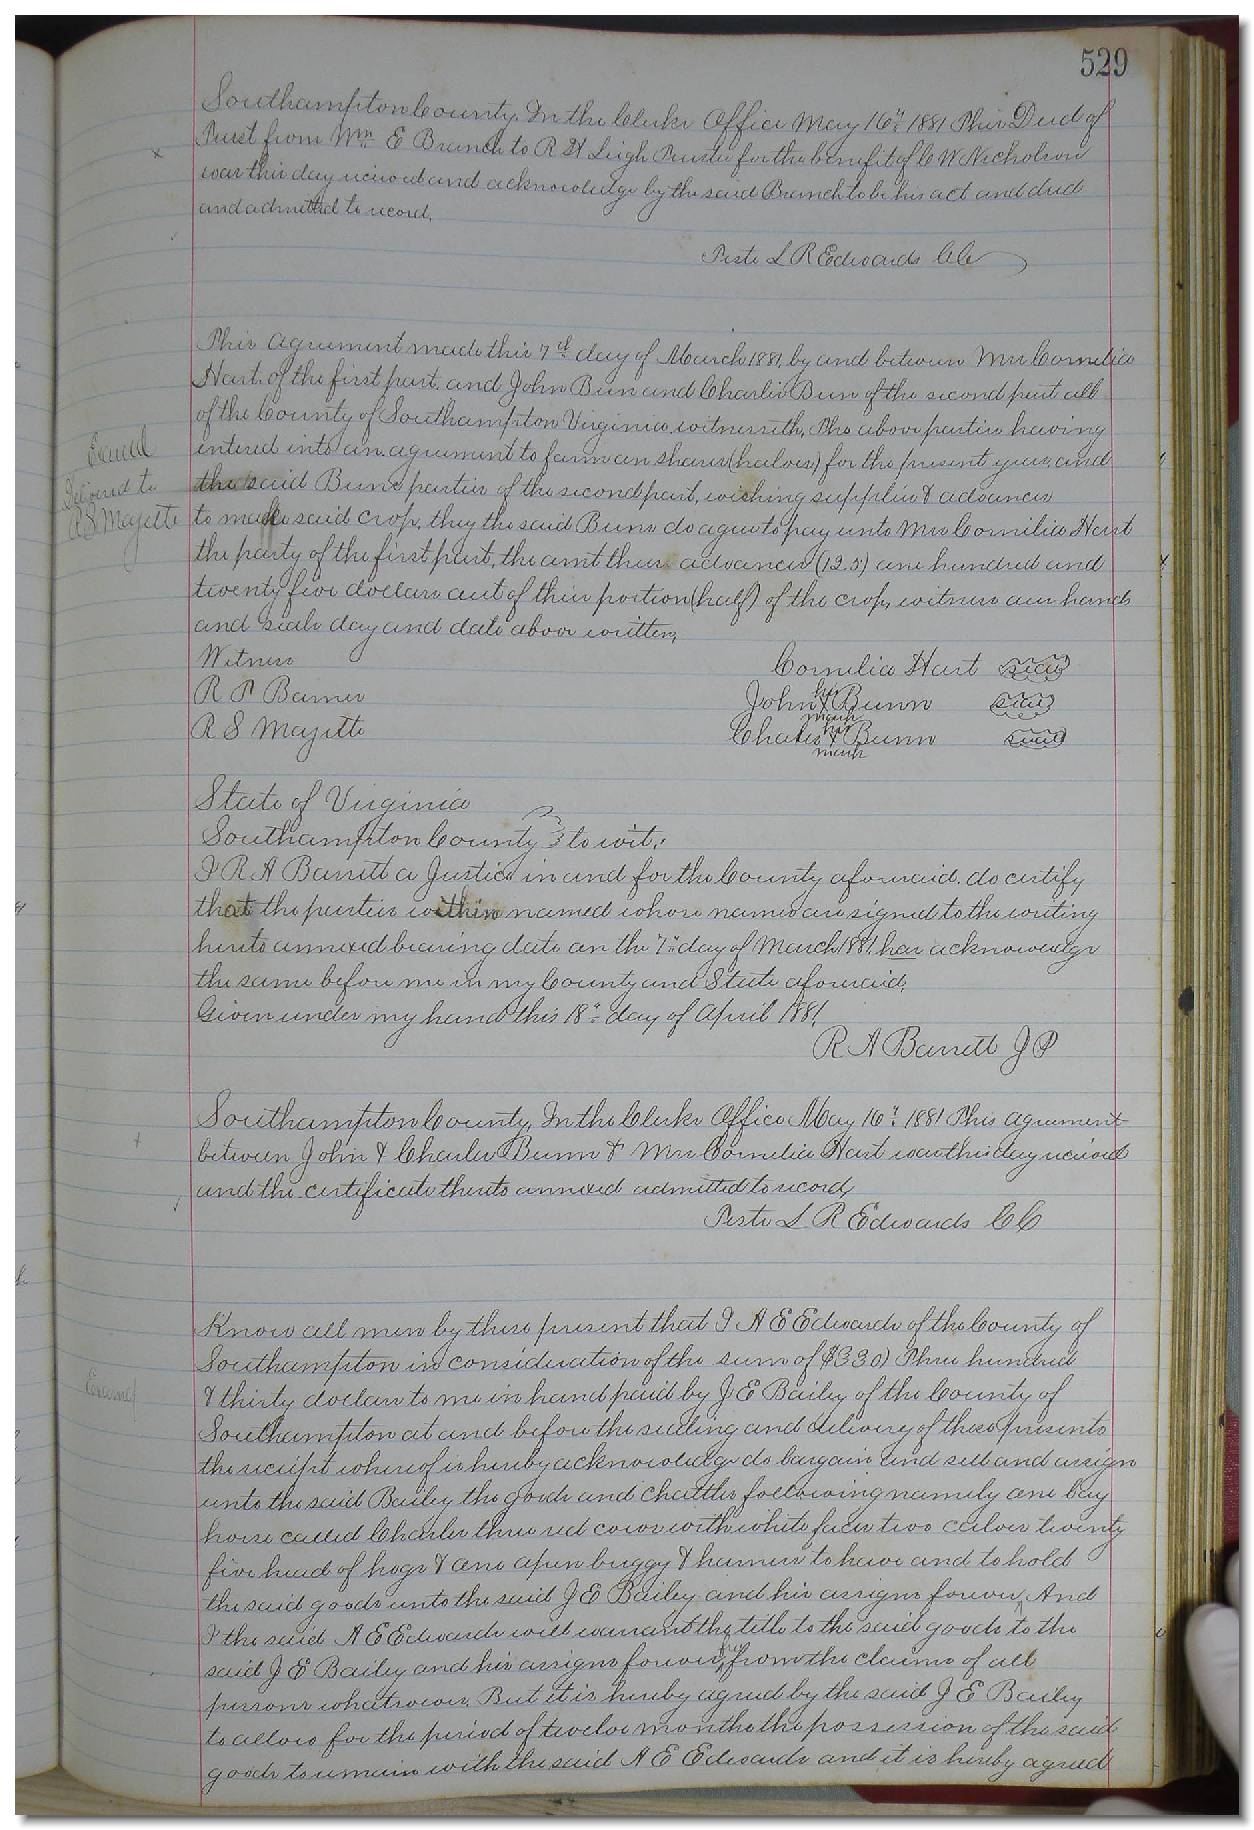 529
Southampton County, In the Clerks Office May 16th 1881 This Deed of
Trust from Wm E Branch to R H Leigh Trustee for the benefit of C W Nicholson
was this day received and acknowledge by the said Branch to be his act and deed
and admitted to record,
Teste L R Edwards CC
This agreement made this 7th day of March 1881, by and between Mrs Cornelia
Hart, of the first part, and John Bun and Charlie Bun of the second part all
of the County of Southampton Virginia, witnesseth, The above parties having
entered into an agreement to farm on shares (halves) for the present year, and
Examd
the said Buns parties of the second part, wishing supplies & advances
Delivered to
R S Majette
to make said crop, they the said Buns do agree to pay unto Mrs Cornelia Hart
the party of the first part, the amt thus advances (125) one hundred and
twenty five dollars out of their portion (half) of the crop, witness our hands
and seals day and date above written,
Witness
Cornelia Hart seal
R P Barnes
John his X mark Bunn seal
R S Majette
Charles his X mark Bunn seal
State of Virginia
Southampton County } to wit:
I R A Barrett a Justice in and for the County aforesaid, do certify
that the parties within named whose names are signed to the writing
hereto annexed bearing date on the 7th day of March 1881, has acknowledge
the same before me in my County and State aforesaid,
Given under my hand this 18th day of April 1881,
R A Barrett J P
Southampton County, In the Clerks Office May 16th 1881 This agreement
between John & Charles Bunn & Mrs Cornelia Hart was this day received
and the certificate thereto annexed admitted to record,
Teste L R Edwards CC
Know all men by these present that I A E Edwards of the County of
Southampton in consideration of the sum of $330) Three hundred
Examd
& thirty dollars to me in hand paid by J E Bailey of the County of
Southampton at and before the sealing and delivery of these presents
the receipt whereof is hereby acknowledge do bargain and sell and assign
unto the said Bailey the goods and chattles following namely one bay
horse called Charles three red cows with white faces two calves twenty
five head of hogs & one open buggy & harness to have and to hold
the said goods unto the said J E Bailey and his assigns forever, And
I the said A E Edwards will warrant the title to the said goods to the
said J E Bailey and his assigns forever, from the claims of all
persons whatsoever, But it is hereby agreed by the said J E Bailey
to allow for the period of twelve months the possession of the said
goods to remain with the said A E Edwards and it is hereby agreed